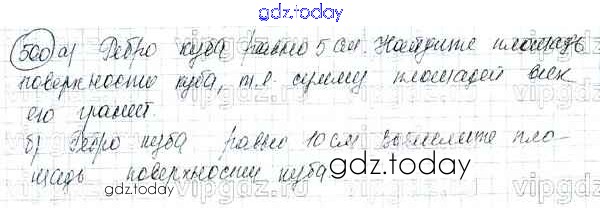 gdz.today
500 а) Ребро куба равно 5 см. Найдите площадь
поверхности куба, т.е. сумму площадей всех
его граней.
б) Ребро куба равно 10 см вычислите пло-
щадь поверхности куба
gdz.today
gdz.today